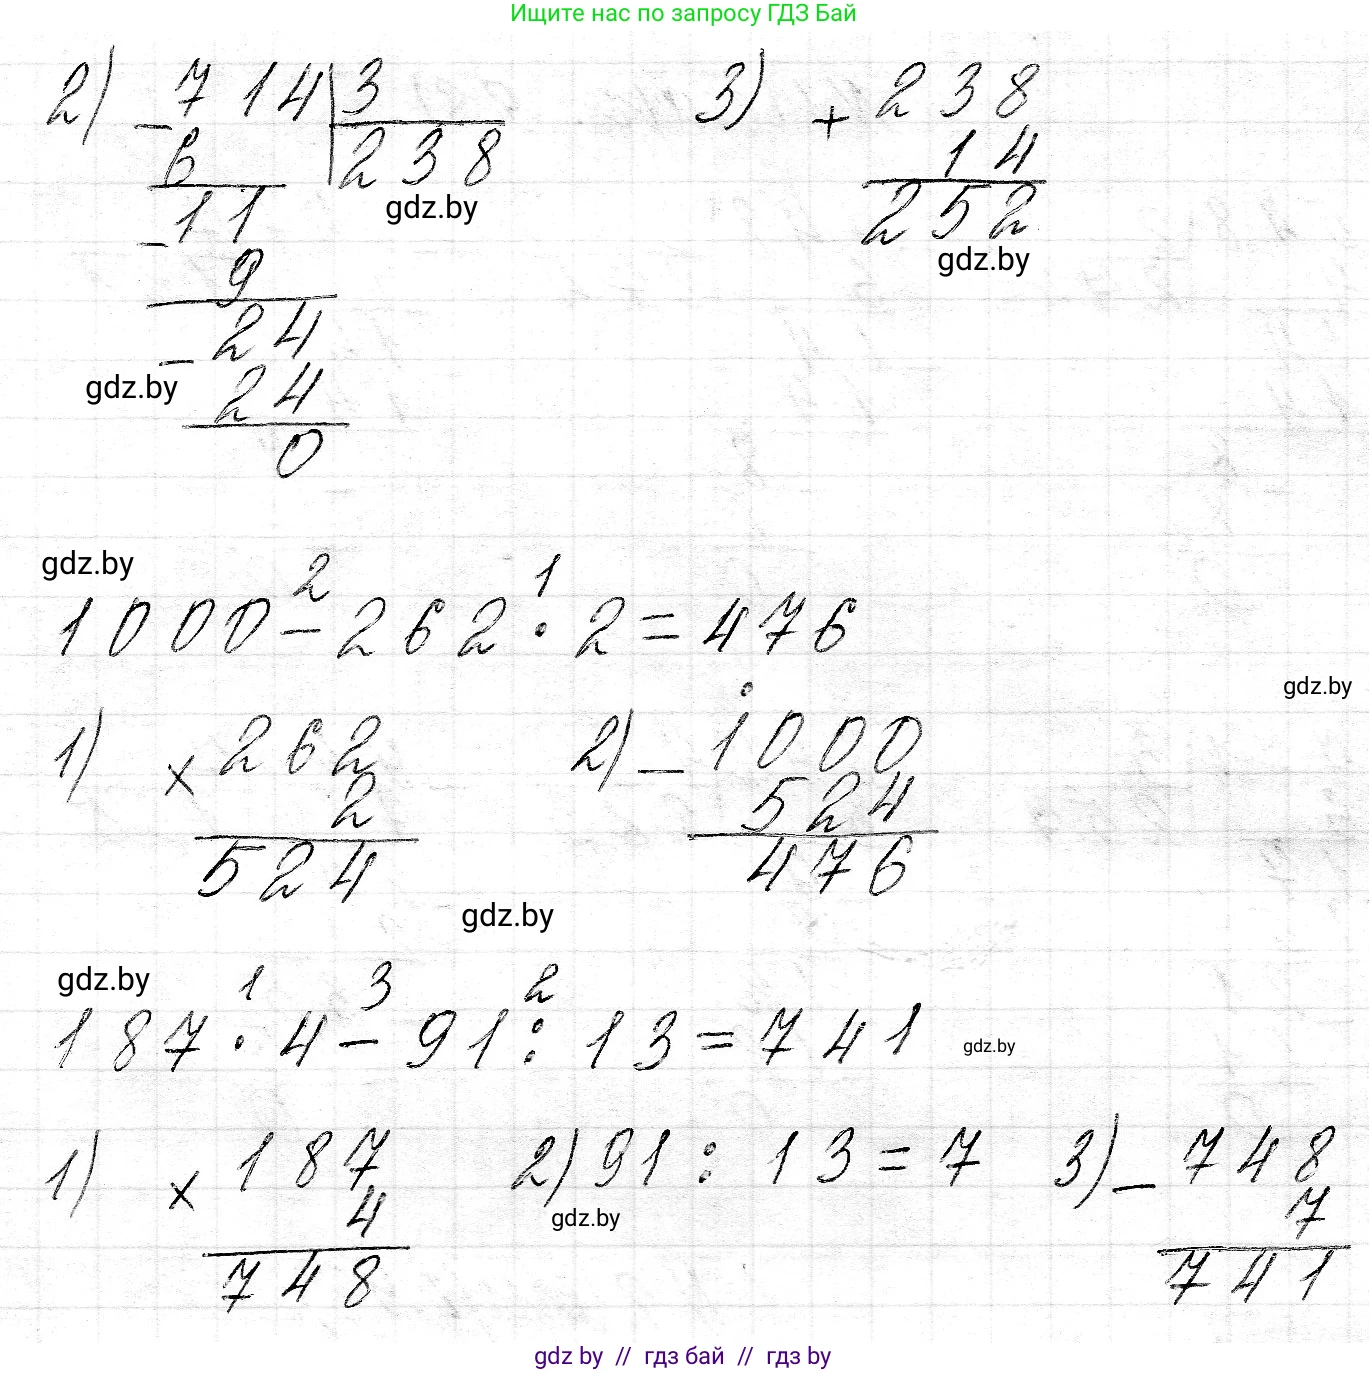 Ищите нас по запросу ГДЗ Бай
2) - 714 | 3
6 238
gdz.by
- 11
9
- 24
gdz.by
24
0
3) + 238
14
252
gdz.by
gdz.by
2 1
1000 - 262 · 2 = 476
gdz.by
1) × 262
2
524
2) - 1000
524
476
gdz.by
gdz.by
1 3 2
187 · 4 - 91 : 13 = 741
gdz.by
1) × 187
4
748
2) 91 : 13 = 7
gdz.by
3) - 748
7
741
gdz by // гдз бай // гдз by